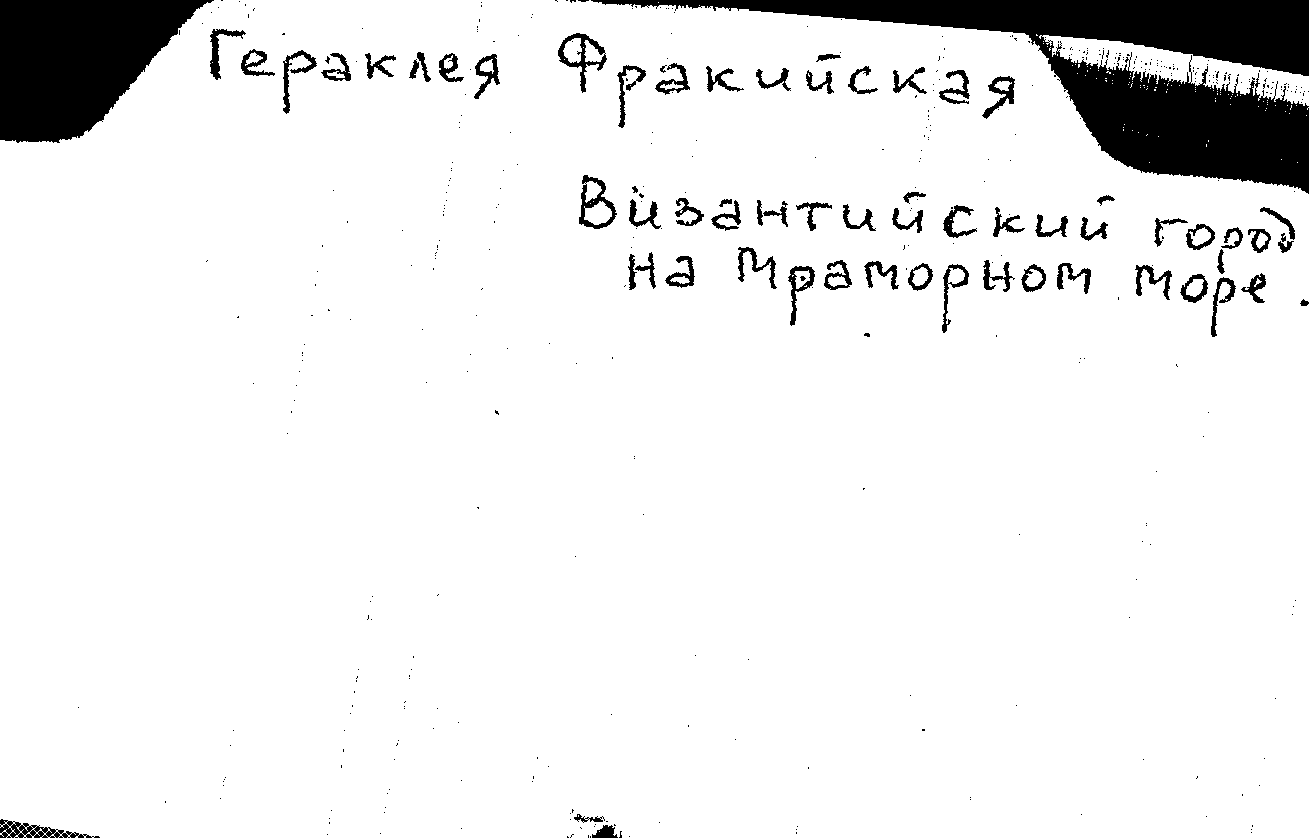 Гераклея Фракийская
Византийский город
на Мраморном море.